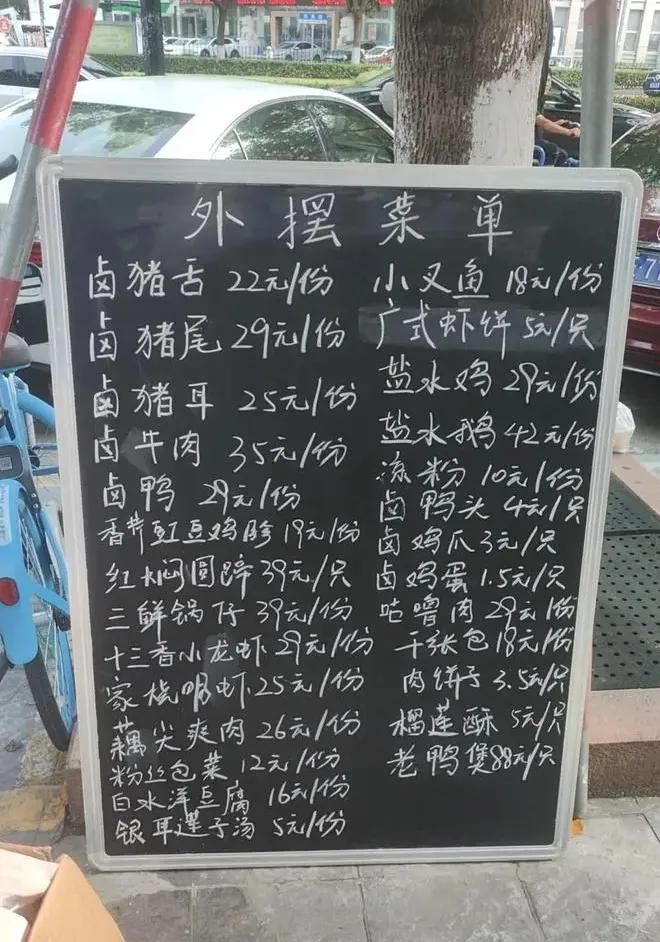 外摆菜单
卤猪舌 22元/份
卤猪尾 29元/份
卤猪耳 25元/份
卤牛肉 35元/份
卤鸭 29元/份
香芹豇豆鸡胗 19元/份
红焖圆蹄 39元/只
三鲜锅仔 39元/份
十三香小龙虾 29元/份
家烧明虾 25元/份
藕尖爽肉 26元/份
粉丝包菜 12元/份
白水洋豆腐 16元/份
银耳莲子汤 5元/份
小叉鱼 18元/份
广式虾饼 5元/只
盐水鸡 29元/份
盐水鹅 42元/份
凉粉 10元/份
卤鸭头 4元/只
卤鸡爪 3元/只
卤鸡蛋 1.5元/只
咕噜肉 29元/份
千张包 18元/份
肉饼子 3.5元/只
榴莲酥 5元/只
老鸭煲 88元/只